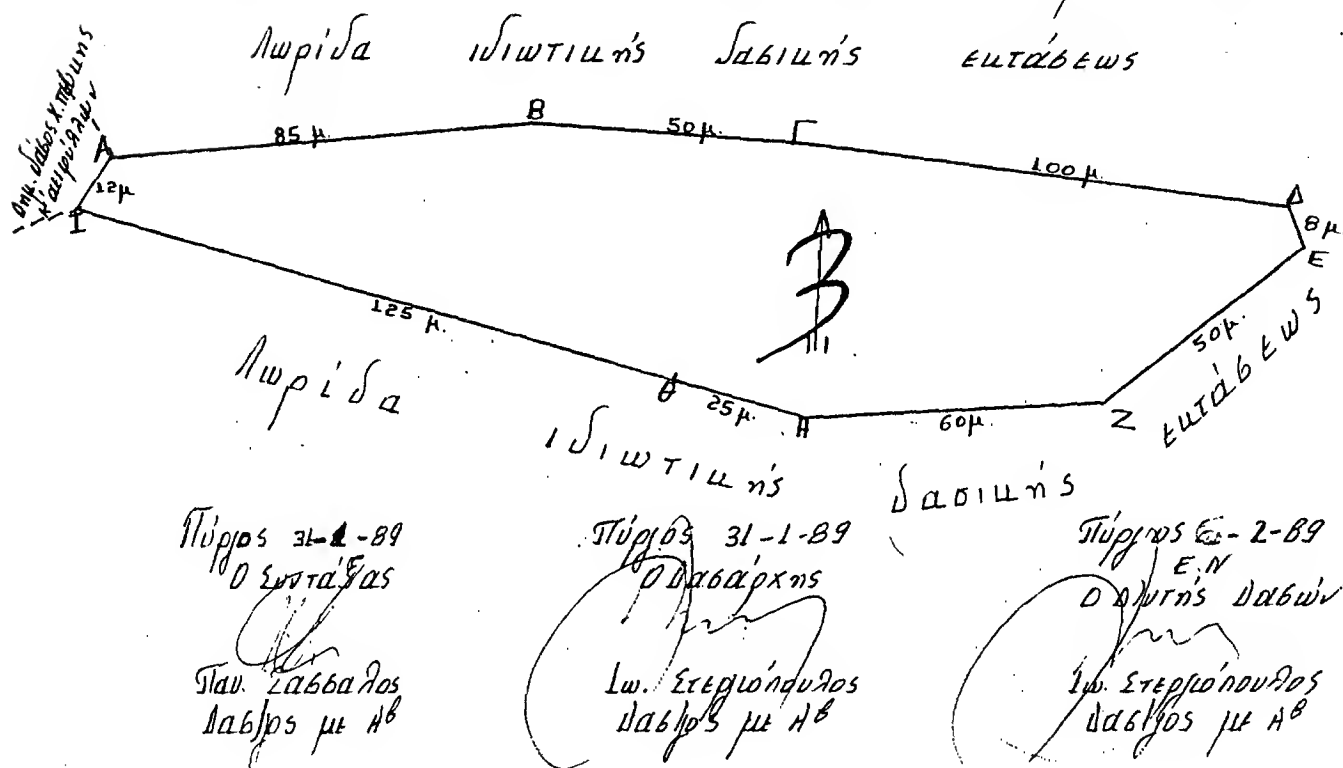 Λωρίδα ιδιωτικής δασικής εκτάσεως
Δημ. δάσος Χ. πεύκης
κ' αειφύλλων
Α 85 μ. Β 50 μ. Γ 100 μ. Δ
12μ 8 μ
Ι Ε
3
Π
125 μ. 50 μ.
Θ 25 μ. Η 60 μ. Ζ
Λωρίδα ιδιωτικής δασικής εκτάσεως
Πύργος 31-1-89
Ο Συντάξας
Παν. Σασσαλος
Δασ/γος με Αβ
Πύργος 31-1-89
Ο Δασάρχης
Ιω. Στεργιόπουλος
Δασ/γος με Αβ
Πύργος 6-2-89
Ε.Ν
Ο Δ/ντής Δασών
Ιω. Στεργιόπουλος
Δασ/γος με Αβ